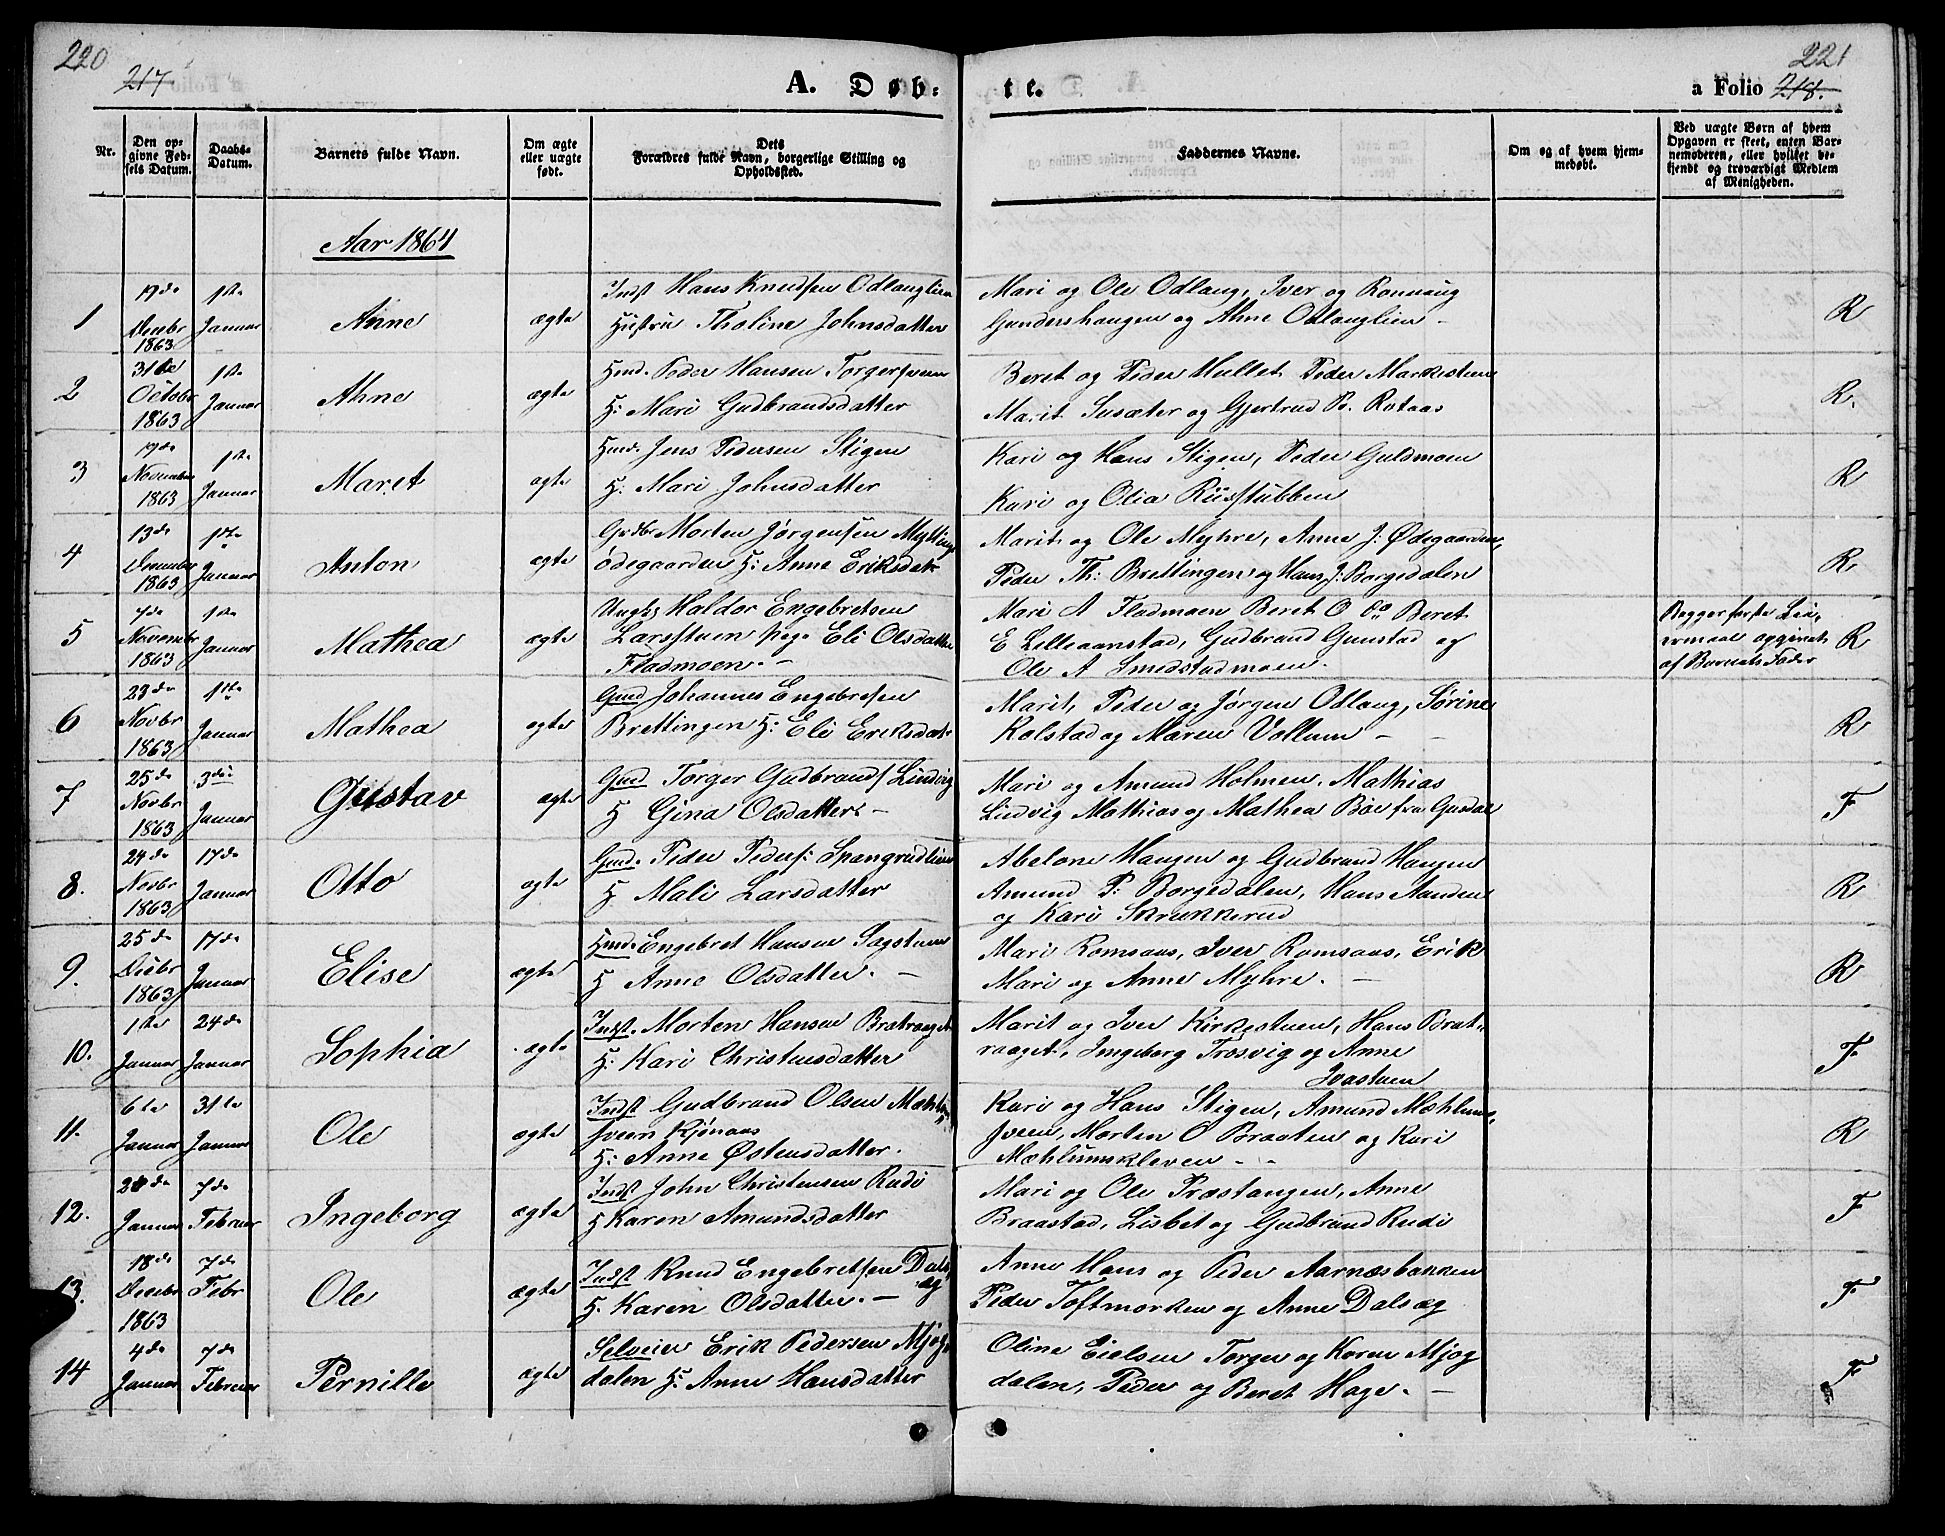 220
217
A. Døb-
te.
221
a Folio 218.
Nr.
Den op-
givne Fød-
sels Datum.
Daabs-
Datum.
Barnets fulde Navn.
Om ægte
eller uægte
født.
Dets
Forældres fulde Navn, borgerlige Stilling og
Opholdssted.
Faddernes Navne.
Om og af hvem hjem-
medøbt.
Ved uægte Børn af hvem
Opgaven er skeet, enten Bar-
nemoderen, eller hvilket be-
kjendt og troværdigt Medlem
af Menigheden.
Aar 1864
1
19de
Decbr
1863
1ste
Januar
Anne
ægte
Indst Hans Knudsen Odlauglien
Hustru Tholine Johnsdatter
Mari og Ole Odlaug, Iver og Ronnaug
Gundershaugen og Anne Odlauglien -
R
2
31te
Octobr
1863
1ste
Januar
Anne
ægte
Hmd. Peder Hansen Torgersveen
H: Mari Gudbrandsdatter
Beret og Peder Hullet Peder Markestuen
Marit Susæter og Gjertrud P. Rotaas
R.
3
19de
November
1863
1ste
Januar
Maret
ægte
Hmd. Jens Pedersen Stigen
H. Mari Johnsdatter
Kari og Hans Stigen, Peder Guldmoen
Kari og Olia Riisstubben
R
4
13de
December
1863
1ste
Januar
Anton
ægte
Grdbr Morten Jørgensen Myttings
ødegaarden H: Anne Eriksdatr
Marit og Ole Myhre, Anne J: Ødegaarden,
Peder Th: Brettingen og Hans J: Borgedalen
R
5
7de
Novembr
1863
1ste
Januar
Mathea
ægte
Ungk Haldor Engebretsen
Larsstuen pige Eli Olsdatter
Fladmoen. -
Mari A Fladmoen Beret O do Beret
E Lilleaanstad, Gudbrand Gunstad og
Ole A Smedstadmoen.
Begges første Lei-
ermaal opgivet
af Barnets Fader
R
6
23de
Novbr
1863
1ste
Januar
Mathea
ægte
Gmd Johannes Engebretsen
Brettingen H: Eli Eriksdatr
Marit, Peder og Jørgen Odlaug, Sørine
Kolstad og Maren Vollum -
R
7
25de
Novbr
1863
3die
Januar
Gustav
ægte
Gmd Torger Gudbrands Lindvig
H Gina Olsdatter -
Mari og Amund Holmen, Mathias
Lindvig Mathias og Mathea Bøe fra Gusdal
F
8.
24de
Novbr
1863
17de
Januar
Otto
ægte
Gmd. Peder Peders: Spangrudlien
H Mali Larsdatter
Abelone Haugen og Gudbrand Haugen
Amund P: Borgedalen, Hans Aanden
og Kari Skrukkerud
R
9.
25de
Decbr
1863
17de
Januar
Elise
ægte
Hmd. Engebret Hansen Sagstuen
H Anne Olsdatter. -
Mari Romsaas, Iver Romsaas, Erik
Mari og Anne Myhre. -
R
10.
1ste
Januar
24de
Januar
Sophia
ægte
Indst. Morten Hansen Bratraaget
H: Kari Christensdatter
Marit og Iver Kirkestuen, Hans Brat-
raaget, Ingeborg Trosvig og Anne
Ivastuen
F
11.
6te
Januar
31te
Januar
Ole
ægte
Indst Gudbrand Olsen Mæhlum
sveen Kjønaas
H: Anne Østensdatter.
Kari og Hans Stigen, Amund Mæhlums,
sveen, Morten O Braaten og Kari
Mæhlumskleven - -
R
12.
24de
Januar
7de
Februar
Ingeborg
ægte
Indst John Christensen Rudi
H Karen Amundsdatter
Mari og Ole Præstangen, Anne
Braastad, Lisbet og Gudbrand Rudi
F
13.
18de
Decebr
1863
7de
Febr
Ole
ægte
Indst Knud Engebretsen Dals
æg
H. Karen Olsdatter. -
Anne Hans og Peder Aarnæsbakken
Peder Toftmorken og Anne Dalsæg
F
14
4de
Januar
7de
Februar
Pernille
ægte
Selveier Erik Pedersen Mjøg-
dalen H: Anne Hansdatter
Oline Eielsen Torger og Karen Mjøg
dalen, Peder og Beret Hage. -
F